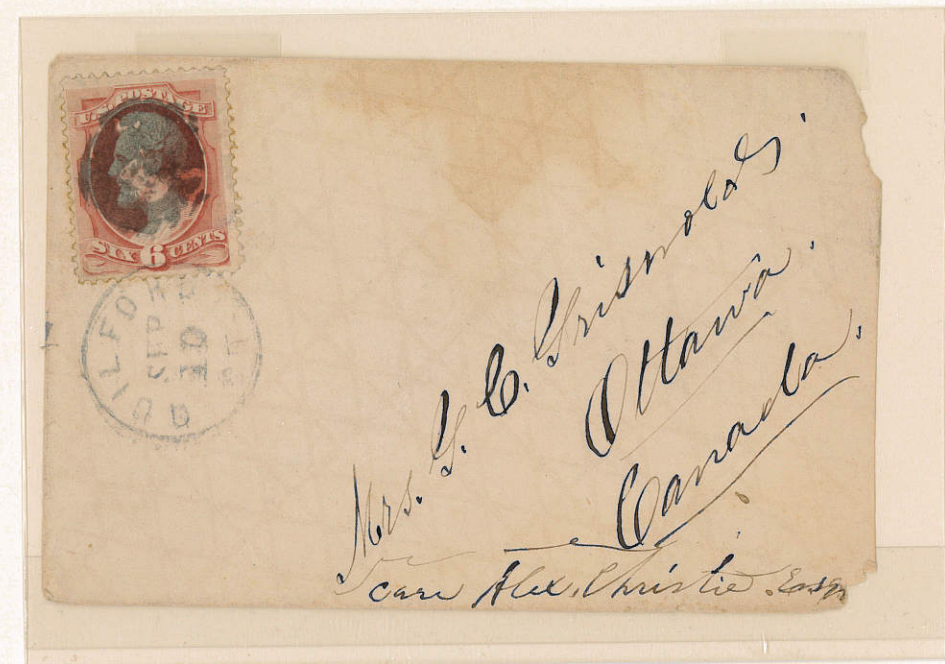 U.S. POSTAGE
SIX 6 CENTS
GUILFORD
SEP
Mrs. G. C. Griswold.
Ottawa.
Canada.
care Alex. Christie. Esqr